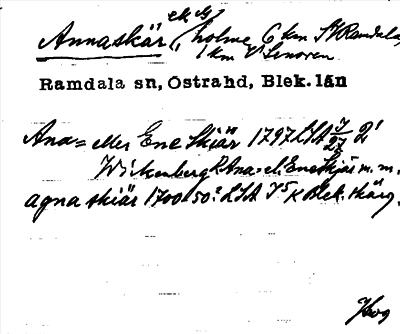 Annaskär, holme 6 km SV Ramdala,
1 km V Senoren.
Ramdala sn, Östrahd, Blek. län
Ana= eller Ene Skiär 1797 LSA 7/27 2'
Wickenberg R Ana= el. Ene Skjär m.m.
agna skiär 1700 50: LSA Blek. skärg.